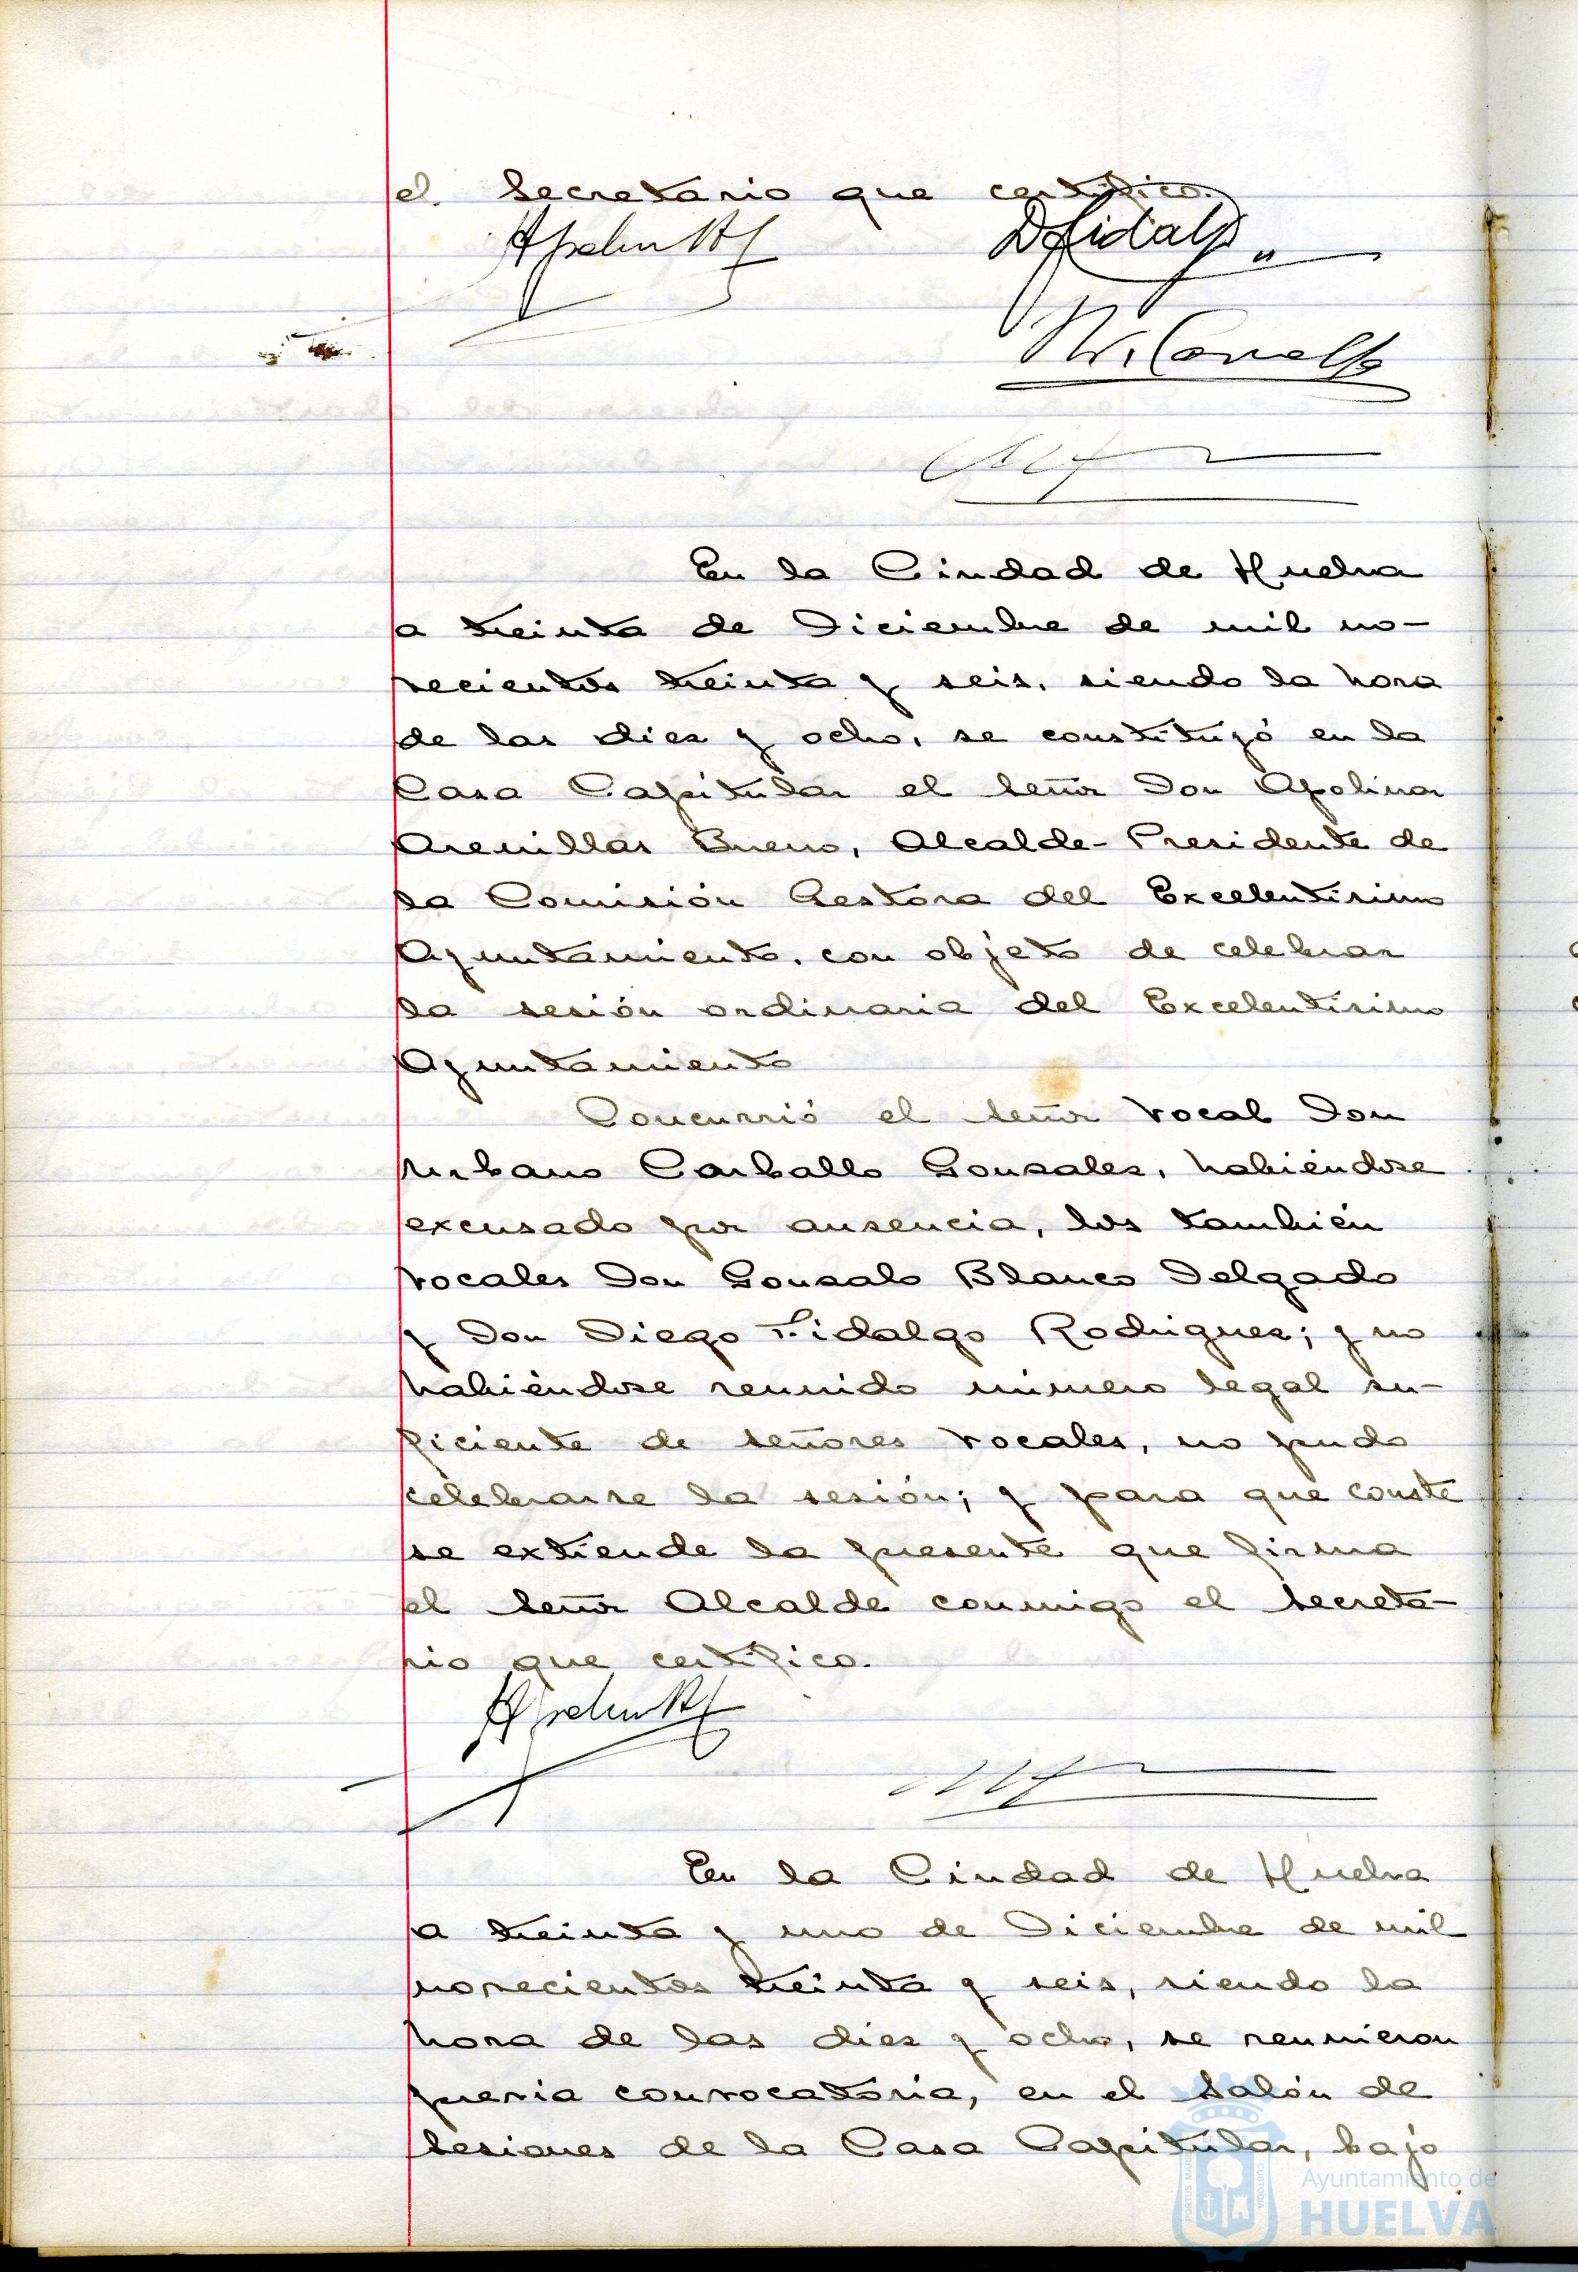 el Secretario que certifico.
D Fidalgo
En la Ciudad de Huelva
a treinta de Diciembre de mil no-
vecientos treinta y seis, siendo la hora
de las diez y ocho, se constituyó en la
Casa Capitular el Señor Don Apolinar
Arenillas Bueno, Alcalde-Presidente de
la Comisión Gestora del Excelentísimo
Ayuntamiento, con objeto de celebrar
la sesión ordinaria del Excelentísimo
Ayuntamiento
Concurrió el Señor Vocal Don
Urbano Carballo Gonzales, habiéndose
excusado por ausencia, los también
Vocales Don Gonzalo Blanco Delgado
y Don Diego Fidalgo Rodriguez; y no
habiéndose reunido número legal su-
ficiente de señores Vocales, no pudo
celebrarse la sesión; y para que conste
se extiende la presente que firma
el Señor Alcalde conmigo el Secreta-
rio que certifico.
En la Ciudad de Huelva
a treinta y uno de Diciembre de mil
novecientos treinta y seis, siendo la
hora de las diez y ocho, se reunieron
previa convocatoria, en el Salón de
Sesiones de la Casa Capitular, bajo
Ayuntamiento de
HUELVA